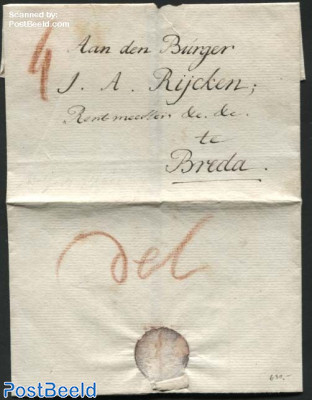 Scanned by
PostBeeld
4
Aan den Burger
J. A. Rijcken;
Rentmeester &c. &c.
te
Breda.
del
PostBeeld